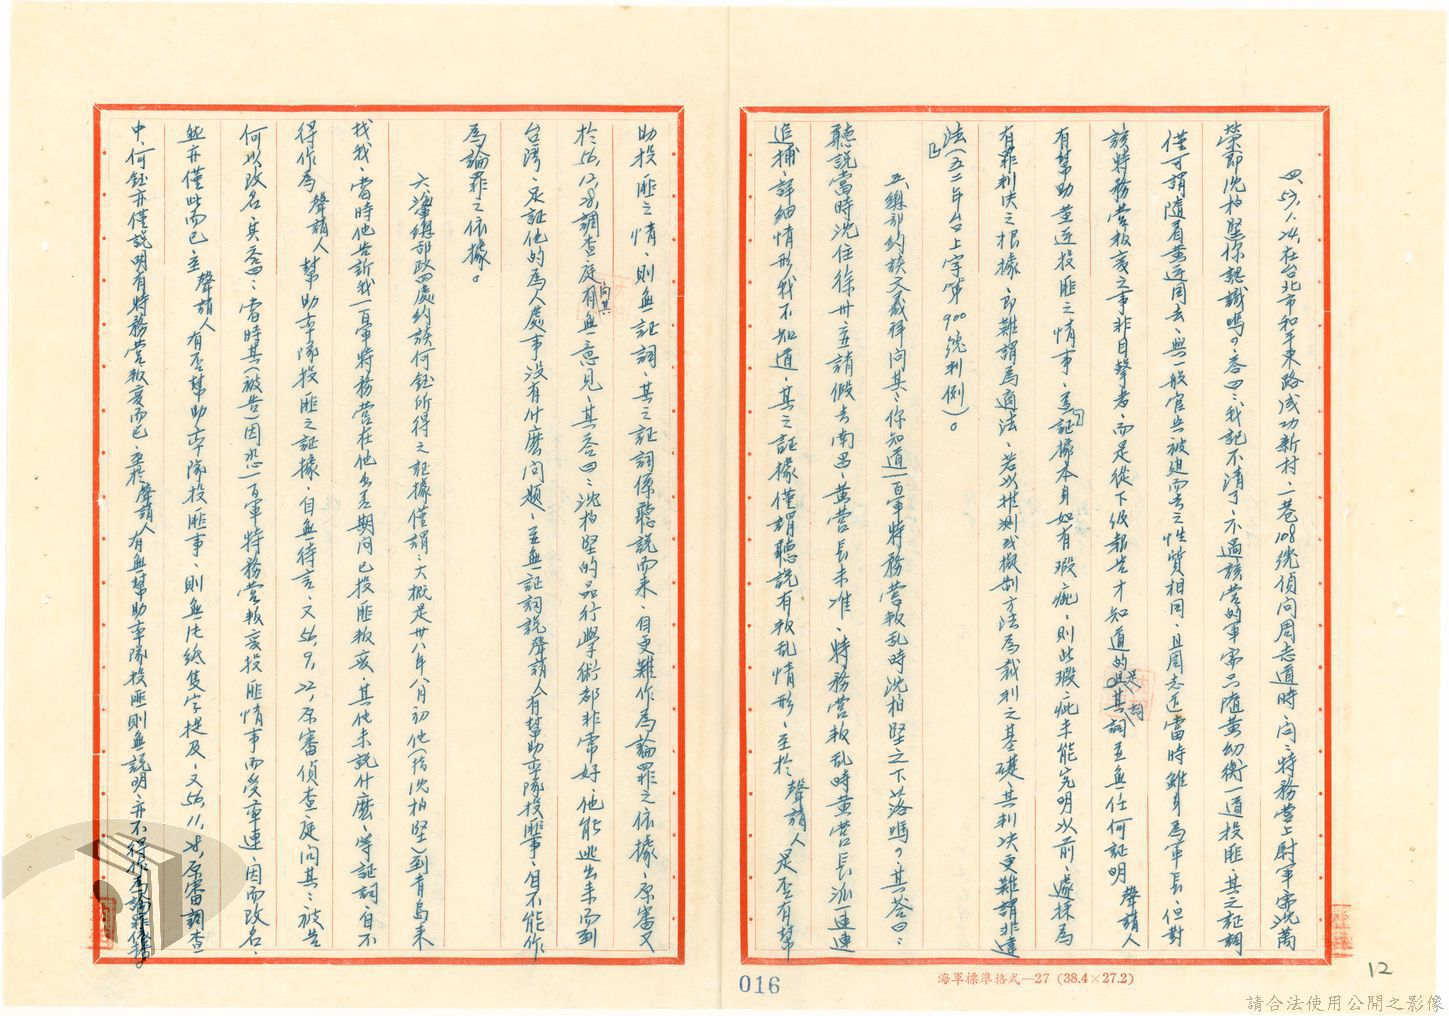 四、57.1.24.在台北市和平東路成功新村一巷108號偵問周志道時、問:特務營上尉軍需沈萬
榮即沈柏堅你認識嗎?答曰:我記不清了、不過該營的軍需只隨黃幼衡一道投匪、其之証詞
僅可謂隨着黃逆同去、與一般官兵被迫而去之性質相同、且周志道當時雖身為軍長、但對
該特務營叛變之事非目擊者、而是從下級報告才知道的、是其詞並無任何証明 聲請人
有幫助黃逆投匪之情事、查証據本身如有瑕疵、則此瑕疵未能究明以前、遽採為
有罪判決之根據、即難謂為適法、若以推測或擬制方法為裁判之基礎、其判決更難謂非違
法(五二年台上字第900號判例)。
五、總部約談文義祥問其:你知道一百軍特務營叛乱時沈柏堅之下落嗎?其答曰:
聽說當時沈住徐州立請假去南昌、黃營長未准、特務營叛乱時黃營長派一連連
追捕、詳細情形我不知道、其之証據僅謂聽說有叛乱情形、至於 聲請人 是否有幫
助投匪之情、則無証詞、其之証詞係聽說而來、自更難作為論罪之依據、原審又
於56.12.8.調查庭向其有無意見、其答曰:沈柏堅的品行學術都非常好、他能逃出來而到
台灣、足証他的為人處事沒有什麼問題、並無一証詞說聲請人有幫助率隊投匪事、自不能作
為論罪之依據。
六、海軍總部政四處約談何鈺所得之証據僅謂:大概是卅八年八月初他(指沈柏堅)到青島來
找我、當時他告訴我一百軍特務營在他出差期间已投匪叛変、其他未說什麼、等証詞、自不
得作為 聲請人 幫助率隊投匪之証據、自無待言、又56.9.22.原審偵查庭问其:被告
何以改名、其答曰:當時其(被告)因恐一百軍特務營叛変投匪情事而受牽連、因而改名、
然亦僅此而已、至 聲請人 有否幫助率隊投匪事、則無片紙隻字提及、又56.11.28.原審調查
中、何鈺亦僅說明有特務營叛変而已、至於聲請人 有無幫助率隊投匪則無說明、亦不得作為論罪依據。
016
海軍標準格式—27 (38.4×27.2)
12
請合法使用公開之影像